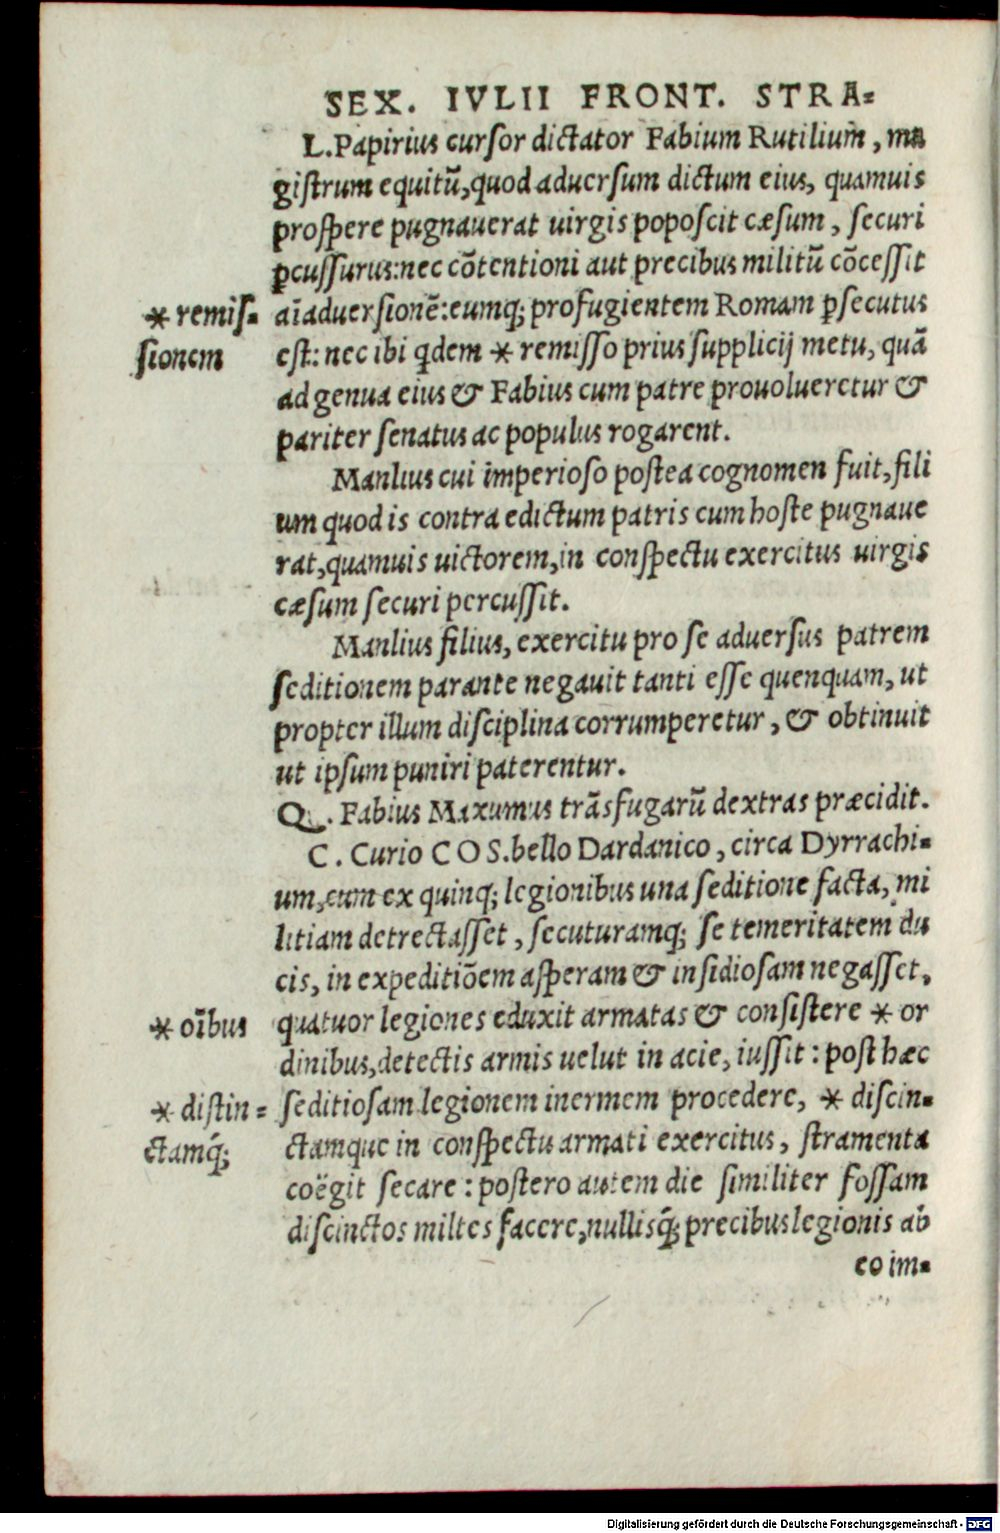 SEX. IVLII FRONT. STRA=
L.Papirius cursor dictator Fabium Rutilium, ma
gistrum equitū,quod aduersum dictum eius, quamuis
prospere pugnauerat uirgis poposcit cæsum, securi
ꝑcussurus:nec cōtentioni aut precibus militū cōcessit
* remis=
sionem
aīaduersionē:eumq; profugientem Romam ꝑsecutus
est: nec ibi qdem * remisso prius supplicij metu, quā
ad genua eius & Fabius cum patre prouolueretur &
pariter senatus ac populus rogarent.
Manlius cui imperioso postea cognomen fuit, fili
um quod is contra edictum patris cum hoste pugnaue
rat,quamuis uictorem,in conspectu exercitus uirgis
cæsum securi percussit.
Manlius filius, exercitu pro se aduersus patrem
seditionem parante negauit tanti esse quenquam, ut
propter illum disciplina corrumperetur, & obtinuit
ut ipsum puniri paterentur.
Q. Fabius Maxumus trāsfugarū dextras præcidit.
C. Curio COS.bello Dardanico, circa Dyrrachi=
um,cum ex quinq; legionibus una seditione facta, mi
litiam detrectasset, secuturamq; se temeritatem du
cis, in expeditiōem asperam & insidiosam negasset,
* oībus
quatuor legiones eduxit armatas & consistere * or
dinibus,detectis armis uelut in acie, iussit: post hæc
* distin=
ctamq́;
seditiosam legionem inermem procedere, * discin=
ctamque in conspectu armati exercitus, stramenta
coëgit secare: postero autem die similiter fossam
discinctos miltes facere,nullisq́; precibus legionis ab
eo im=
Digitalisierung gefördert durch die Deutsche Forschungsgemeinschaft - DFG